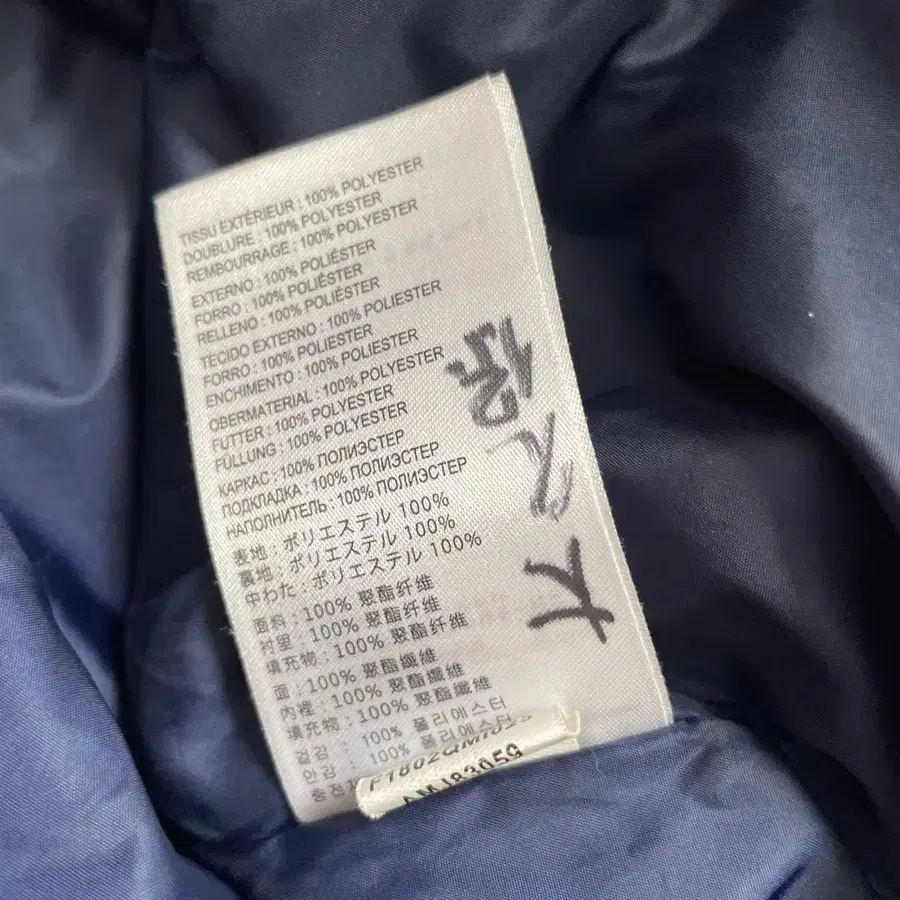 TISSU EXTÉRIEUR : 100% POLYESTER
DOUBLURE : 100% POLYESTER
REMBOURRAGE : 100% POLYESTER
EXTERNO : 100% POLIÉSTER
FORRO : 100% POLIÉSTER
RELLENO : 100% POLIÉSTER
TECIDO EXTERNO : 100% POLIESTER
FORRO : 100% POLIESTER
ENCHIMENTO : 100% POLIESTER
OBERMATERIAL : 100% POLYESTER
FUTTER : 100% POLYESTER
FÜLLUNG : 100% POLYESTER
КАРКАС : 100% ПОЛИЭСТЕР
ПОДКЛАДКА : 100% ПОЛИЭСТЕР
НАПОЛНИТЕЛЬ : 100% ПОЛИЭСТЕР
表地 : ポリエステル 100%
裏地 : ポリエステル 100%
中わた : ポリエステル 100%
面料 : 100% 聚酯纤维
衬里 : 100% 聚酯纤维
填充物 : 100% 聚酯纤维
面 : 100% 聚酯纖維
內裡 : 100% 聚酯纖維
填充物 : 100% 聚酯纖維
겉감 : 100% 폴리에스터
안감 : 100% 폴리에스터
충전